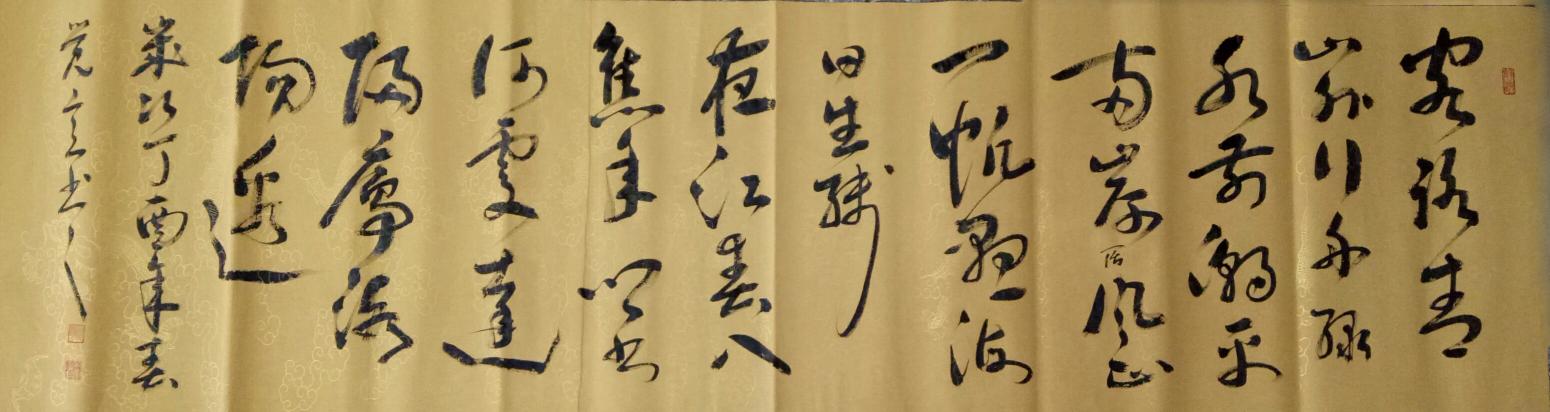 客路青
山外行舟绿
水前潮平
两岸阔风正
一帆悬海
日生残
夜江春入
旧年乡书
何处达
归雁洛
阳边
岁次丁酉年春
觉书